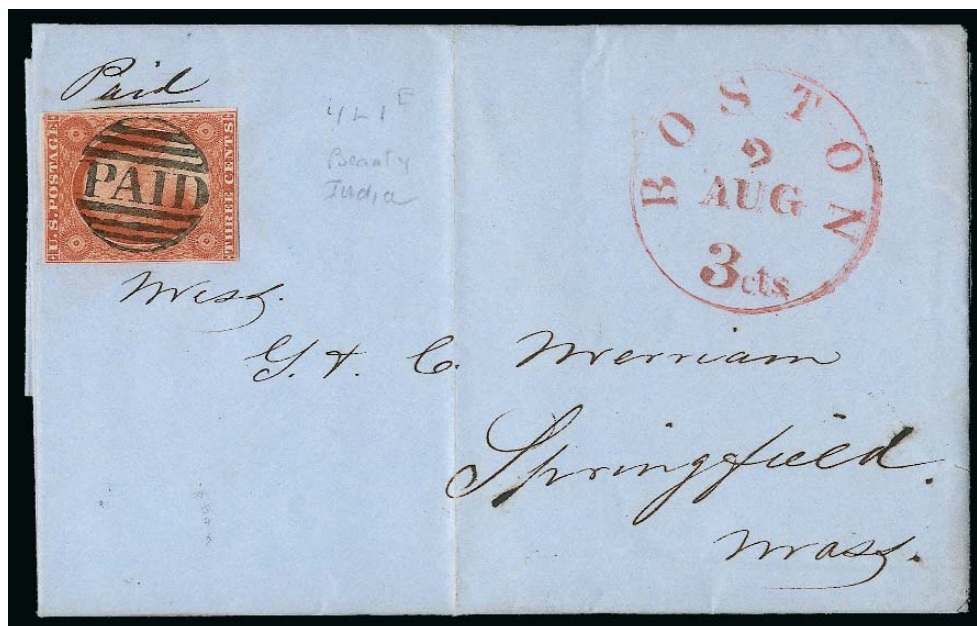 Paid
U.S. POSTAGE
PAID
THREE CENTS
Beauty
India
BOSTON
2
AUG
3cts
Mess.
G. & C. Merriam
Springfield.
Mass.